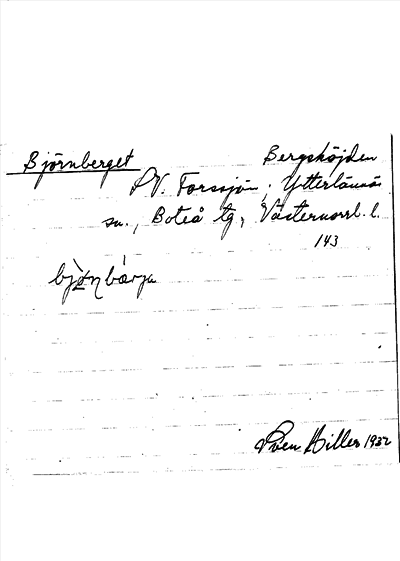 Björnberget Bergshöjden
SV. Forssjön. Ytterlännäs
sn., Boteå tg, Västernorrl. l.
143
bjö̀ɳbárja
Sven Hillert 1932